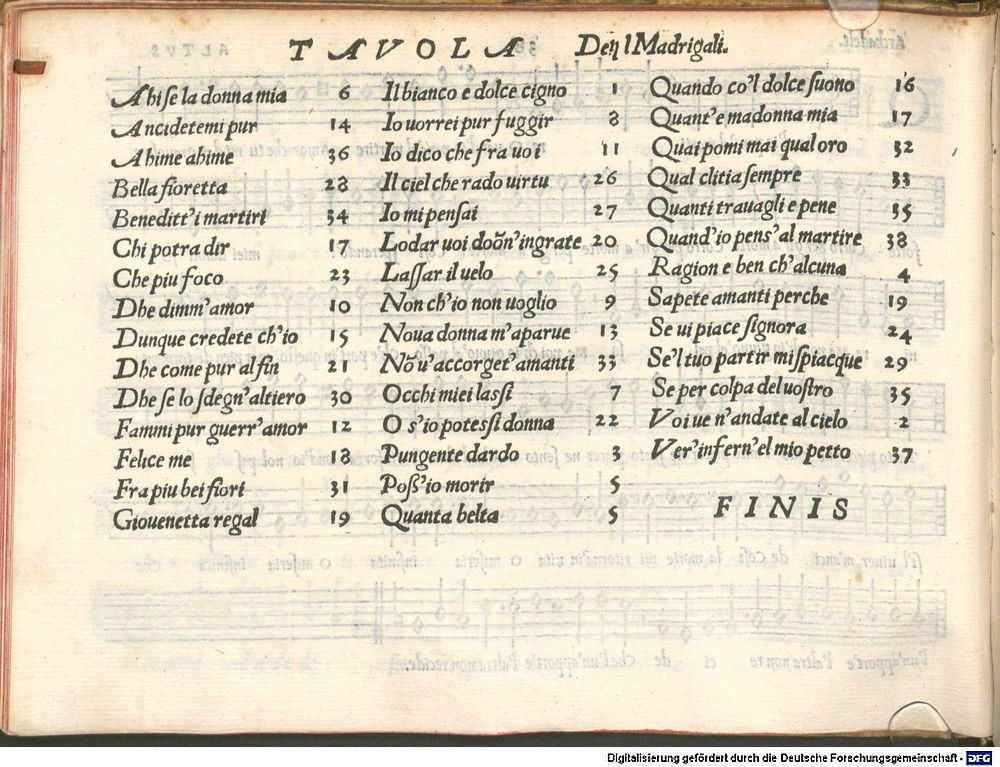 TAVOLA Deęl Madrigali.
Ahi se la donna mia 6
Ancidetemi pur 14
Ahime ahime 36
Bella fioretta 28
Beneditt'i martiri 34
Chi potra dir 17
Che piu foco 23
Dhe dimm'amor 10
Dunque credete ch'io 15
Dhe come pur al fin 21
Dhe se lo sdegn'altiero 30
Fammi pur guerr'amor 12
Felice me 18
Fra piu bei fiori 31
Giouenetta regal 19
Il bianco e dolce cigno 1
Io uorrei pur fuggir 8
Io dico che fra uoi 11
Il ciel che rado uirtu 26
Io mi pensai 27
Lodar uoi doñn'ingrate 20
Lassar il uelo 25
Non ch'io non uoglio 9
Noua donna m'aparue 13
Nõ u'accorget'amanti 33
Occhi miei lassi 7
O s'io potessi donna 22
Pungente dardo 3
Poss'io morir 5
Quanta belta 5
Quando co'l dolce suono 16
Quant'e madonna mia 17
Quai pomi mai qual oro 32
Qual clitia sempre 33
Quanti trauagli e pene 35
Quand'io pens'al martire 38
Ragion e ben ch'alcuna 4
Sapete amanti perche 19
Se ui piace signora 24
Se'l tuo partir mi spiacque 29
Se per colpa del uostro 35
Voi ue n'andate al cielo 2
Ver'infern'el mio petto 37
FINIS
Digitalisierung gefördert durch die Deutsche Forschungsgemeinschaft - DFG